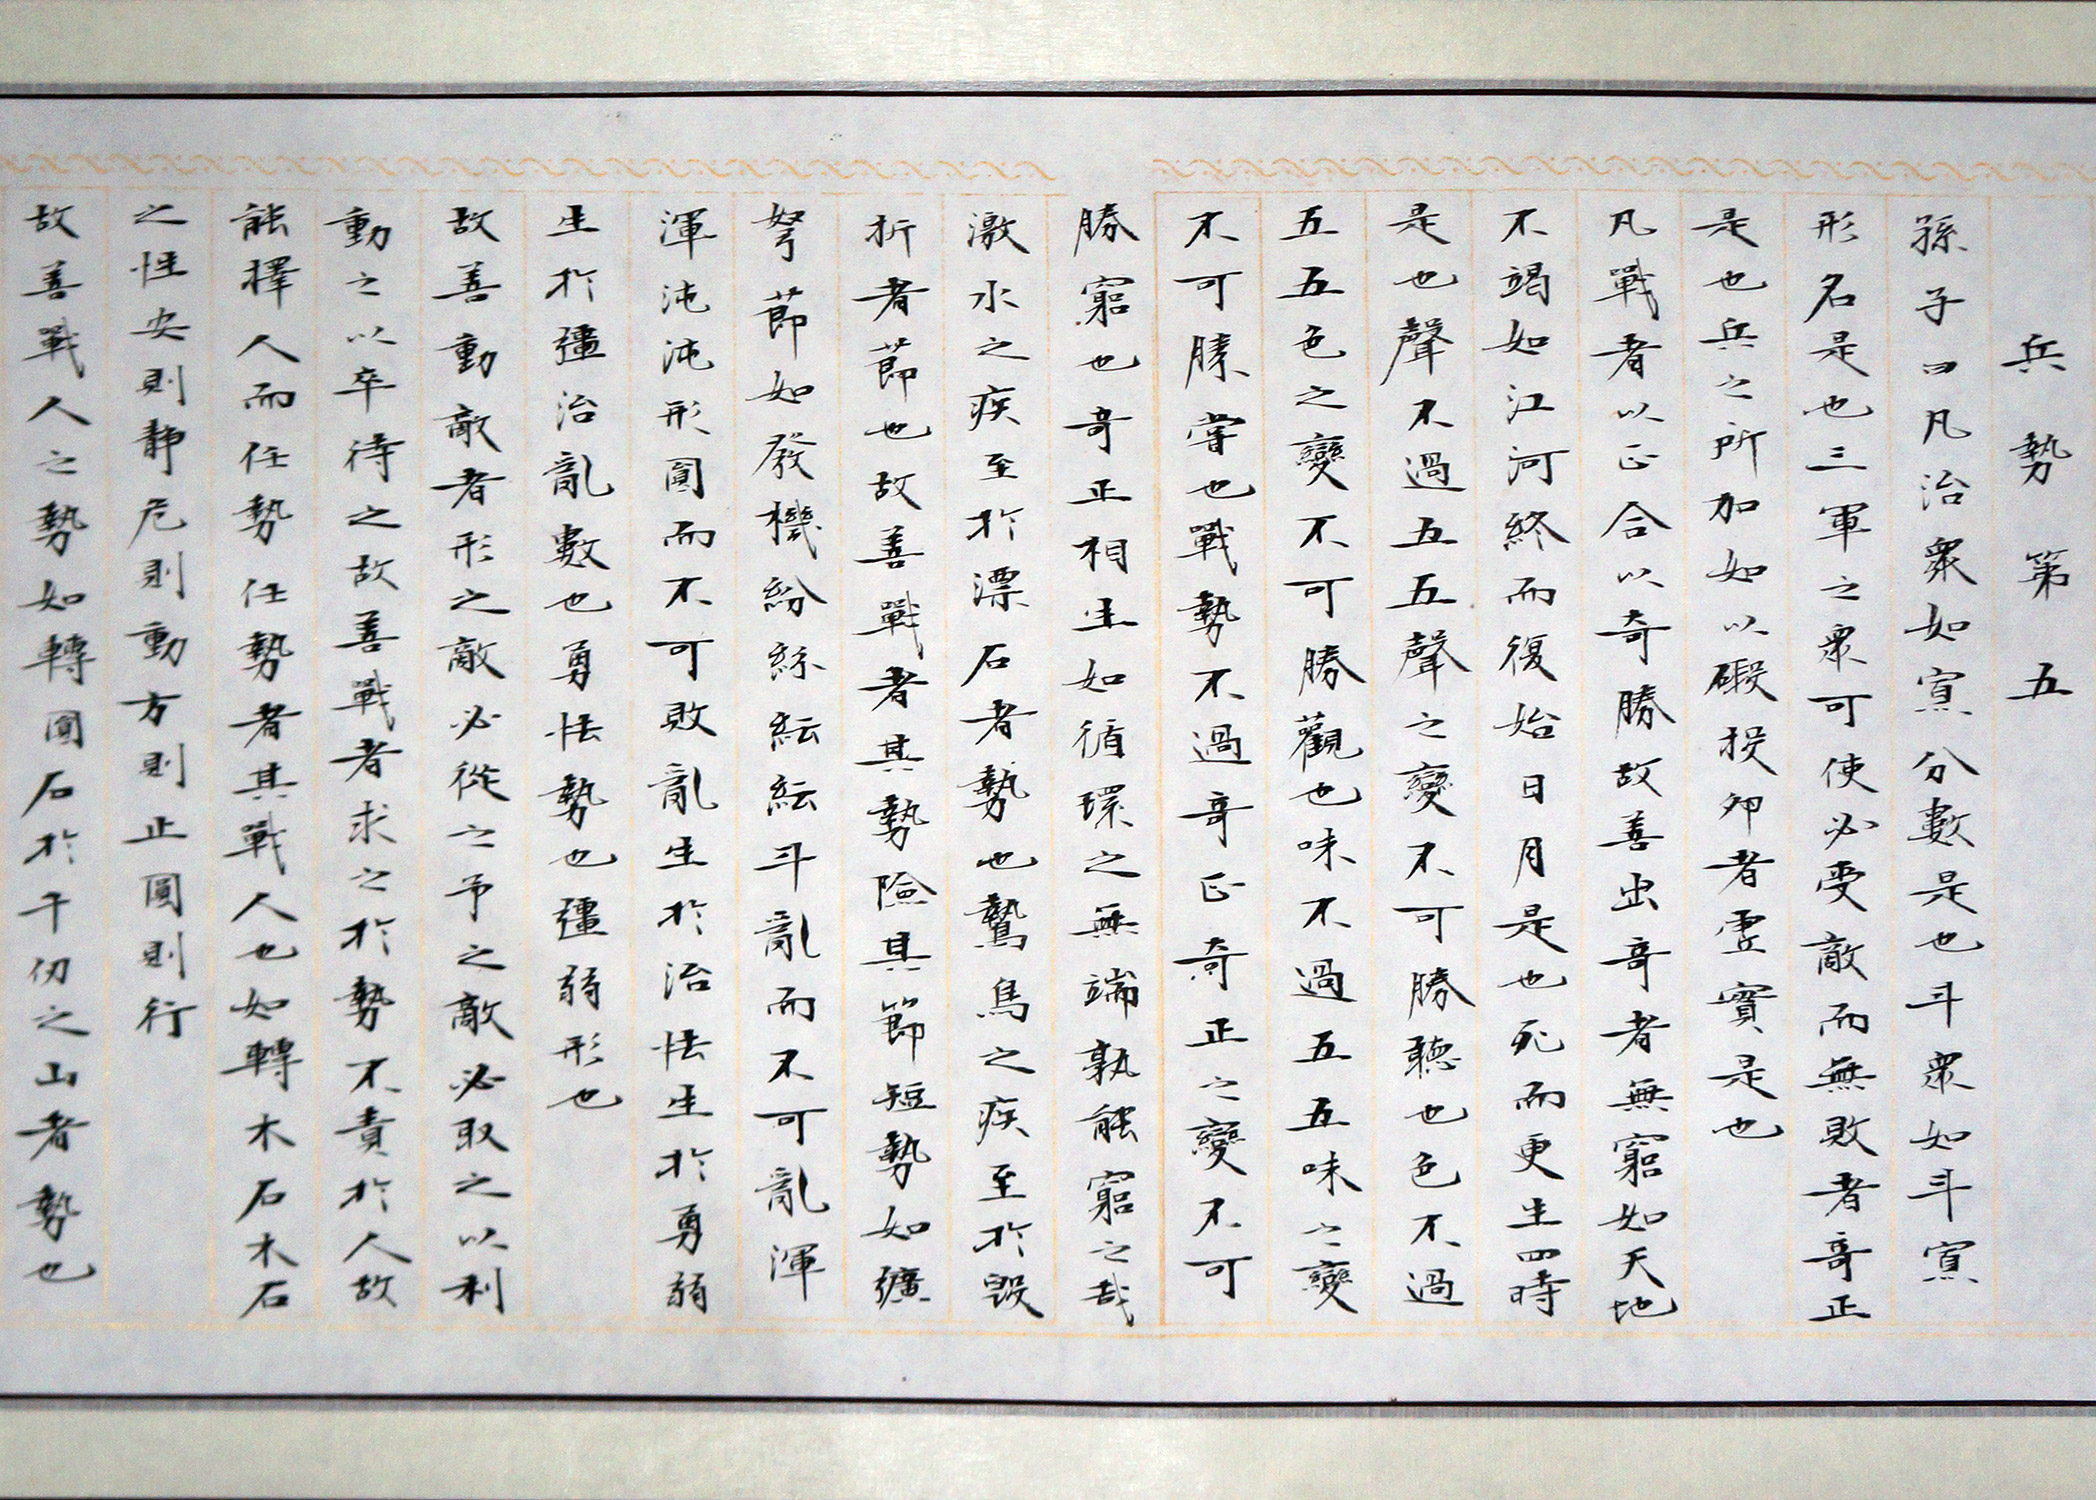 兵勢第五
孫子曰凡治衆如寡分數是也斗衆如斗寡
形名是也三軍之衆可使必受敵而無敗者奇正
是也兵之所加如以碬投卵者虛實是也
凡戰者以正合以奇勝故善出奇者無窮如天地
不竭如江河終而復始日月是也死而更生四時
是也聲不過五五聲之變不可勝聽也色不過
五五色之變不可勝觀也味不過五五味之變
不可勝嘗也戰勢不過奇正奇正之變不可
勝窮也奇正相生如循環之無端孰能窮之哉
激水之疾至於漂石者勢也鷙鳥之疾至於毀
折者節也故善戰者其勢險其節短勢如彍
弩節如發機紛紛紜紜斗亂而不可亂渾
渾沌沌形圓而不可敗亂生於治怯生於勇弱
生於彊治亂數也勇怯勢也彊弱形也
故善動敵者形之敵必從之予之敵必取之以利
動之以卒待之故善戰者求之於勢不責於人故
能擇人而任勢任勢者其戰人也如轉木石木石
之性安則靜危則動方則止圓則行
故善戰人之勢如轉圓石於千仞之山者勢也